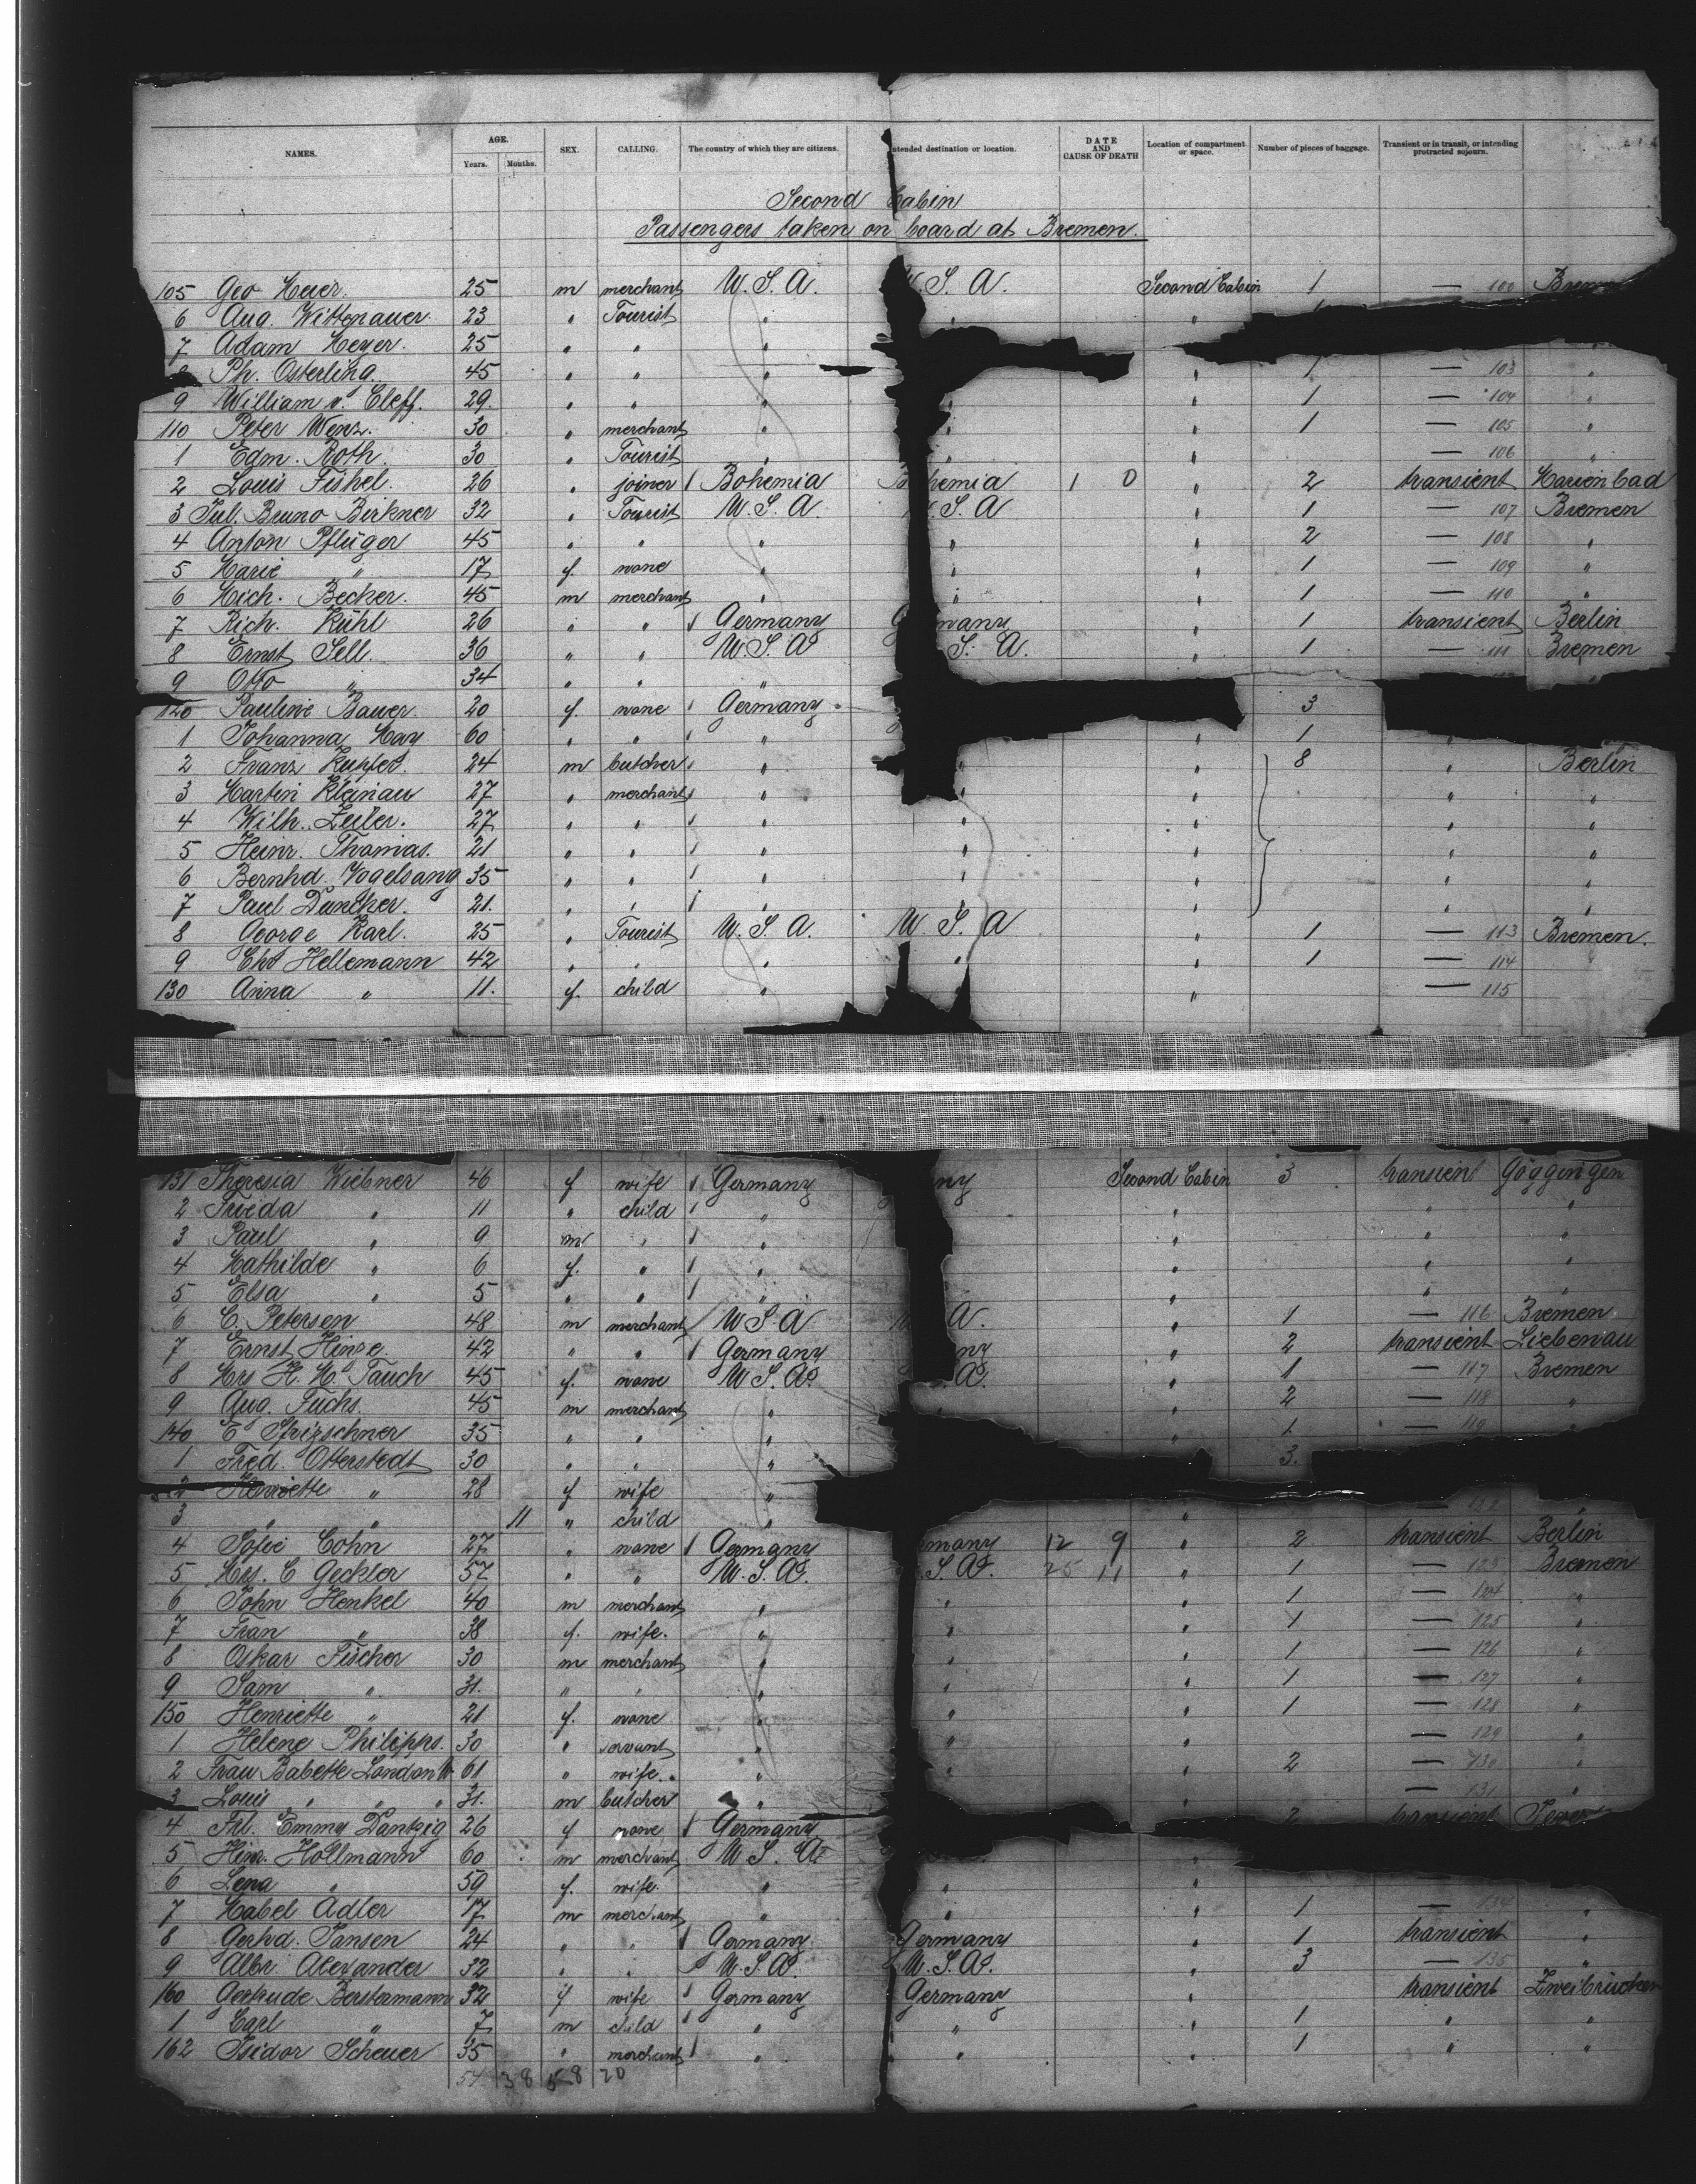 NAMES. AGE. Years. Months. SEX. CALLING. The country of which they are citizens. ntended destination or location. DATE AND CAUSE OF DEATH Location of compartment or space. Number of pieces of baggage. Transient or in transit, or intending protracted sojourn.
Second Cabin
Passengers taken on board at Bremen.
105 Geo Meyer. 25 m merchant U.S.A. U.S.A. Second Cabin 1 — 100
6 Aug. Wittenauer. 23 " Tourist " " "
7 Adam Meyer. 25 " " "
Ph. Osterling. 45 " " " " 1 — 103 "
9 William v. Cleff. 29. " " " " " 1 — 104 "
110 Peter Wenz. 30 " merchant " " " 1 — 105 "
1 Edm. Roth. 30 " Tourist " " " — 106 "
2 Louis Fishel. 26 " joiner Bohemia B hemia 1 0 " 2 transient Marienbad
3 Jul. Bruno Birkner 32 " Tourist U.S.A. .S.A " 1 — 107 Bremen
4 Anton Pflüger 45 " " " " " 2 — 108 "
5 Marie " 17 f. none " " " 1 — 109 "
6 Mich. Becker. 45 m merchant " " " 1 — 110 "
7 Rich. Kühl 26 " " Germany G many " 1 transient Berlin
8 Ernst Sell. 36 " " U.S.A. S.A. " 1 — 111 Bremen
9 Otto " 34 " " "
120 Pauline Bauer. 20 f. none Germany 3
1 Johanna May 60 " " " " 1 "
2 Franz Kupfer. 24 m butcher " " " 8 " Berlin
3 Martin Kleinau 27 " merchant " " " " "
4 Wilh. Zeiler. 27 " " " " " " "
5 Heinr. Thomas. 21 " " " " " " "
6 Bernhd. Vogelsang 35 " " " " " " "
7 Paul Duncker. 21. " " " " " " "
8 George Karl. 25 " Tourist U.S.A. U.S.A " 1 — 113 Bremen.
9 Chs Hellemann 42 " " " " " 1 — 114
130 Anna " 11. f. child " " — 115
131 Theresia Wiebner 46 f wife Germany ny Second Cabin 3 transient Göggingen
2 Frieda " 11 " child " " " "
3 Paul " 9 m " " " " "
4 Mathilde " 6 f. " " " " "
5 Elsa " 5 " " " " " "
6 C. Petersen 48 m merchant U.S.A A. " 1 — 116 Bremen
7 Ernst Hinze. 42 " " Germany ny " 2 transient Liebenau
8 Mrs H. M. Tauch 45 f. none U.S.A. A. " 1 — 117 Bremen
9 Aug. Fuchs. 45 m merchant " " " 2 — 118 "
140 35 " " " " 1 — 119 "
1 Fred. Otterstedt 30 " " " 3.
2 Henriette " 28 f wife "
3 " " 11 " child " "
4 Sofie Cohn 27 " none Germany rmany 12 9 " 2 transient Berlin
5 Mrs. C Geckler 57 " " U.S.A. .S.A. 25 11 " 1 — 123 Bremen
6 John Henkel 40 m merchant " " " 1 — 124 "
7 Frau " 38 f. wife. " " " 1 — 125 "
8 Oskar Fischer 30 m merchant " " " 1 — 126 "
9 Sam " 31. " " " " " 1 — 127 "
150 Henriette " 21 f. none " " " 1 — 128 "
1 Helene Philipps. 30 " servant " " " — 129 "
2 Frau Babette London 61 " wife. " " " 2 — 130 "
3 Louis " " 31. m butcher " " — 131 "
4 Frl. Emmy Dantzig 26 f none Germany 2 transient
5 Hinr. Hollmann 60 m merchant U.S.A. "
6 Lena " 59 f. wife. " " " —
7 Mabel Adler 17 m merchant " " " 1 — 134 "
8 Gerhd. Jansen 24 " " Germany Germany " 1 transient "
9 Albr. Alexander 32 " " U.S.A. U.S.A. " 3 — 135 "
160 Gertrude Berstermann 32 f wife Germany Germany " transient Zweibrücken
1 Carl " 7 m child " " " 1 " "
162 Isidor Scheuer 35 " merchant " " " 1 " "
54 38 58 20